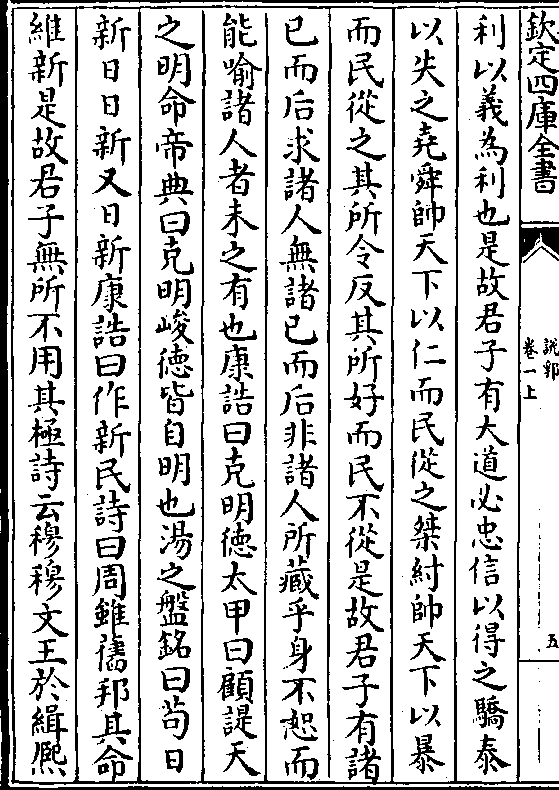 欽定四庫全書
說郛
卷一上
五
利以義為利也是故君子有大道必忠信以得之驕泰
以失之堯舜帥天下以仁而民從之桀紂帥天下以暴
而民從之其所令反其所好而民不從是故君子有諸
已而后求諸人無諸已而后非諸人所藏乎身不恕而
能喻諸人者未之有也康誥曰克明德太甲曰顧諟天
之明命帝典曰克明峻德皆自明也湯之盤銘曰苟日
新日日新又日新康誥曰作新民詩曰周雖舊邦其命
維新是故君子無所不用其極詩云穆穆文王於緝熈